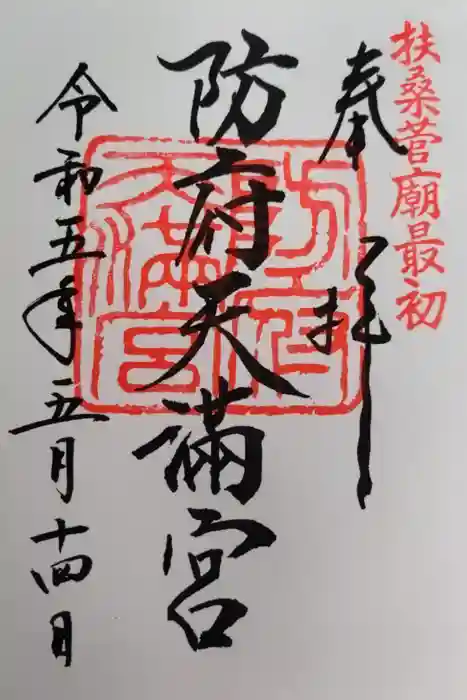 扶桑菅廟最初
奉拝
防府天満宮
令和五年五月十四日
防府天満宮